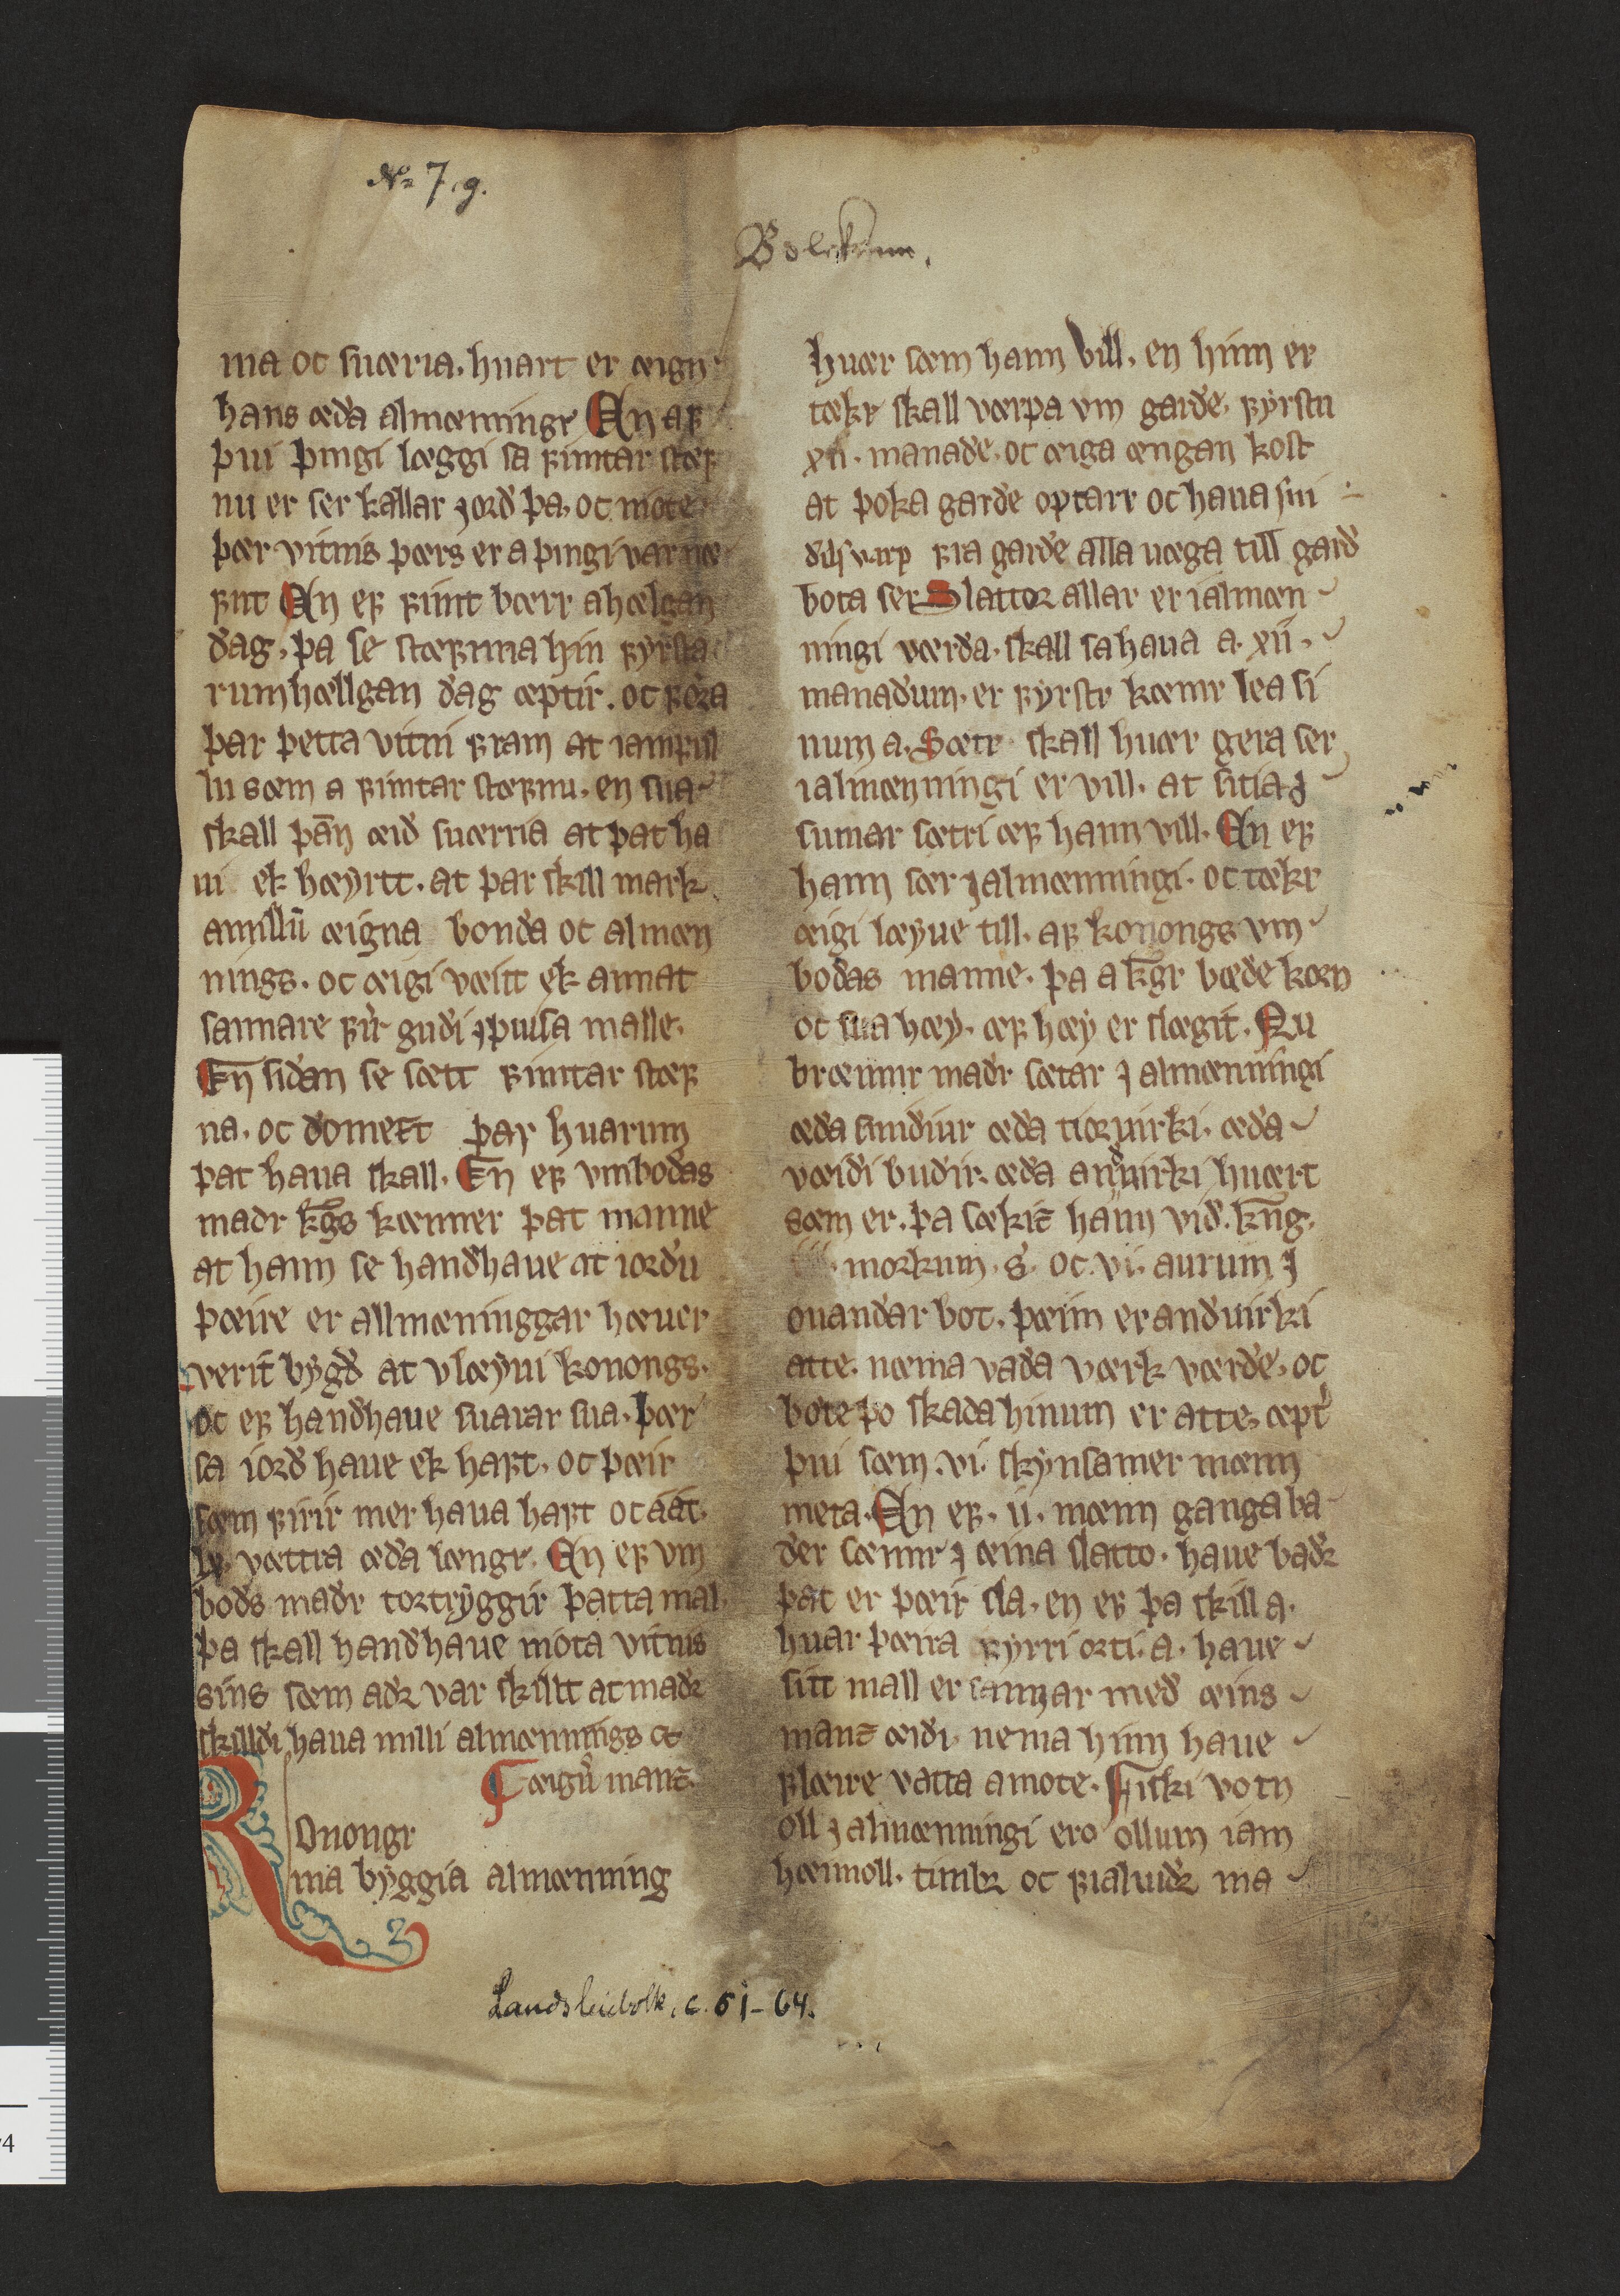 No 7. g.
Bolkrinn.
ma oc suæria. huart er æign
hans æda almænningr En af
þui þingi læggi sa fimtar stæf
nu er ser kallar jord þa, oc møte
þær vitnis þærs er a þingi var næ
fnt En ef fimt bærr a hælgan
dag, þa se stæfnna hin fyrsta
rumhællgan dag æptir. oc føra
þar þetta vitni fram at iamful
lu sæm a fimtar stæfnu. en sua
skall þan̄ æid suærria at þat ha
ui ek hæyrtt. at þar skill mark
amillū æigna bonda oc almæn
nings. oc æigi væitt ek annat
sannare firir gudi j þuisa malle.
En̄ sidan se sætt fimtar stæf
na. oc dømett þar huarum
þat haua skall. En ef vmbodas
madr kgs kænner þat manne
at hann se handhaue at iordu
þæire er allmæninggar hæuer
verit bygd at vlæyui konongs.
oc ef handhaue suarar sua. þær
sa iord haue ek haft. oc þæir
sæm firir mer haua haft oc átt.
lx vættra æda længr. En ef vm
bods madr tortryggir þatta mal.
þa skall handhaue møta vitnis
sins sæm adr var skillt at madr
skilldi haua milli almænnings oc
æignū manz.
Konongr
ma byggia almænning
huær sæm hann vill. en hinn er
tækr skall værpa vm garde, fyrstu
xii. manade, oc æiga ængan kost
at þoka garde optarr oc haua sui
duswarp fra garde alla uæga till gard
bota ser Slattor allar er i almæn
ningi værda. skall sa haua a. xii.
manadum. er fyrstr kæmr lea si
num a. Sætr skall huær gera ser
i almænningi er vill. at sitia j
sumar sætri æf hann vill. En ef
hann sær j almænningi. oc tækr
æigi læyue till. af konongs vm
bodas manne. þa a kgr bæde korn
oc sua hæy. æf hæy er slægit. Nu
brænnir madr sætar j almænningi
æda smidiur æda tioruirki. æda
væidi budir. æda anduirki huært
sæm er. þa sækir hann vid. kng.
morkum. s. oc. vi. aurum j
ouandar bot. þæim er anduirki
atte. næma vada værk værde. oc
bøte þo skada hinum er atte, æptir
þui sæm .vi. skynsamer mænn
meta. En ef. ii. mænn ganga ba
der sænnr j æina slatto. haue badr
þat er þæir sla. en ef þa skill a.
huar þæira fyrri orti. a. haue
sitt mall er sannar med æins
manz æidi. nema hinn haue
flæire vatta amote. Fiski votn
oll j almænningi ero ollum iam
hæimoll. timbr oc fialuidr ma
Landsleiebolk. c. 61-64.